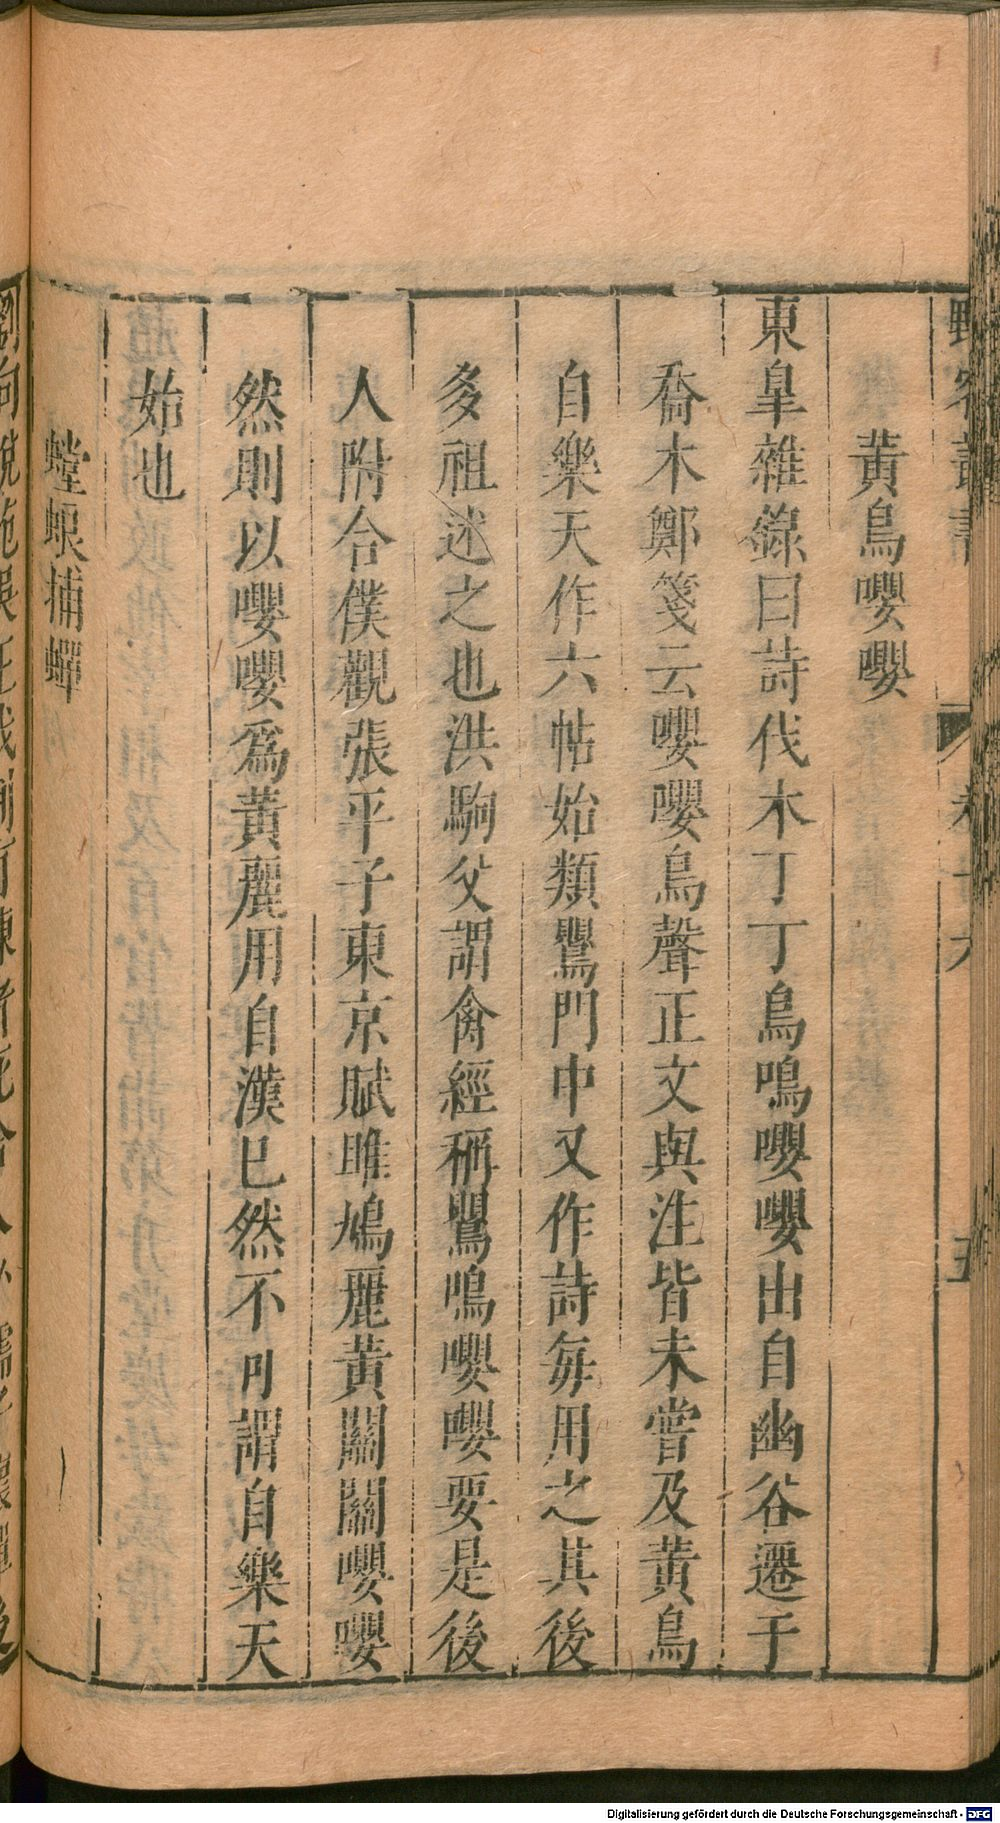 野客叢書 卷十六 五
黃鳥嚶嚶
東皐雜錄曰詩伐木丁丁鳥鳴嚶嚶出自幽谷遷于
喬木鄭箋云嚶嚶鳥聲正文與注皆未嘗及黃鳥
自樂天作六帖始類鸎門中又作詩每用之其後
多祖述之也洪駒父謂禽經稱鸎鳴嚶嚶要是後
人附合僕觀張平子東京賦雎鳩麗黃關關嚶嚶
然則以嚶嚶爲黃麗用自漢已然不可謂自樂天
始也
螳蜋捕蟬
Digitalisierung gefördert durch die Deutsche Forschungsgemeinschaft - DFG